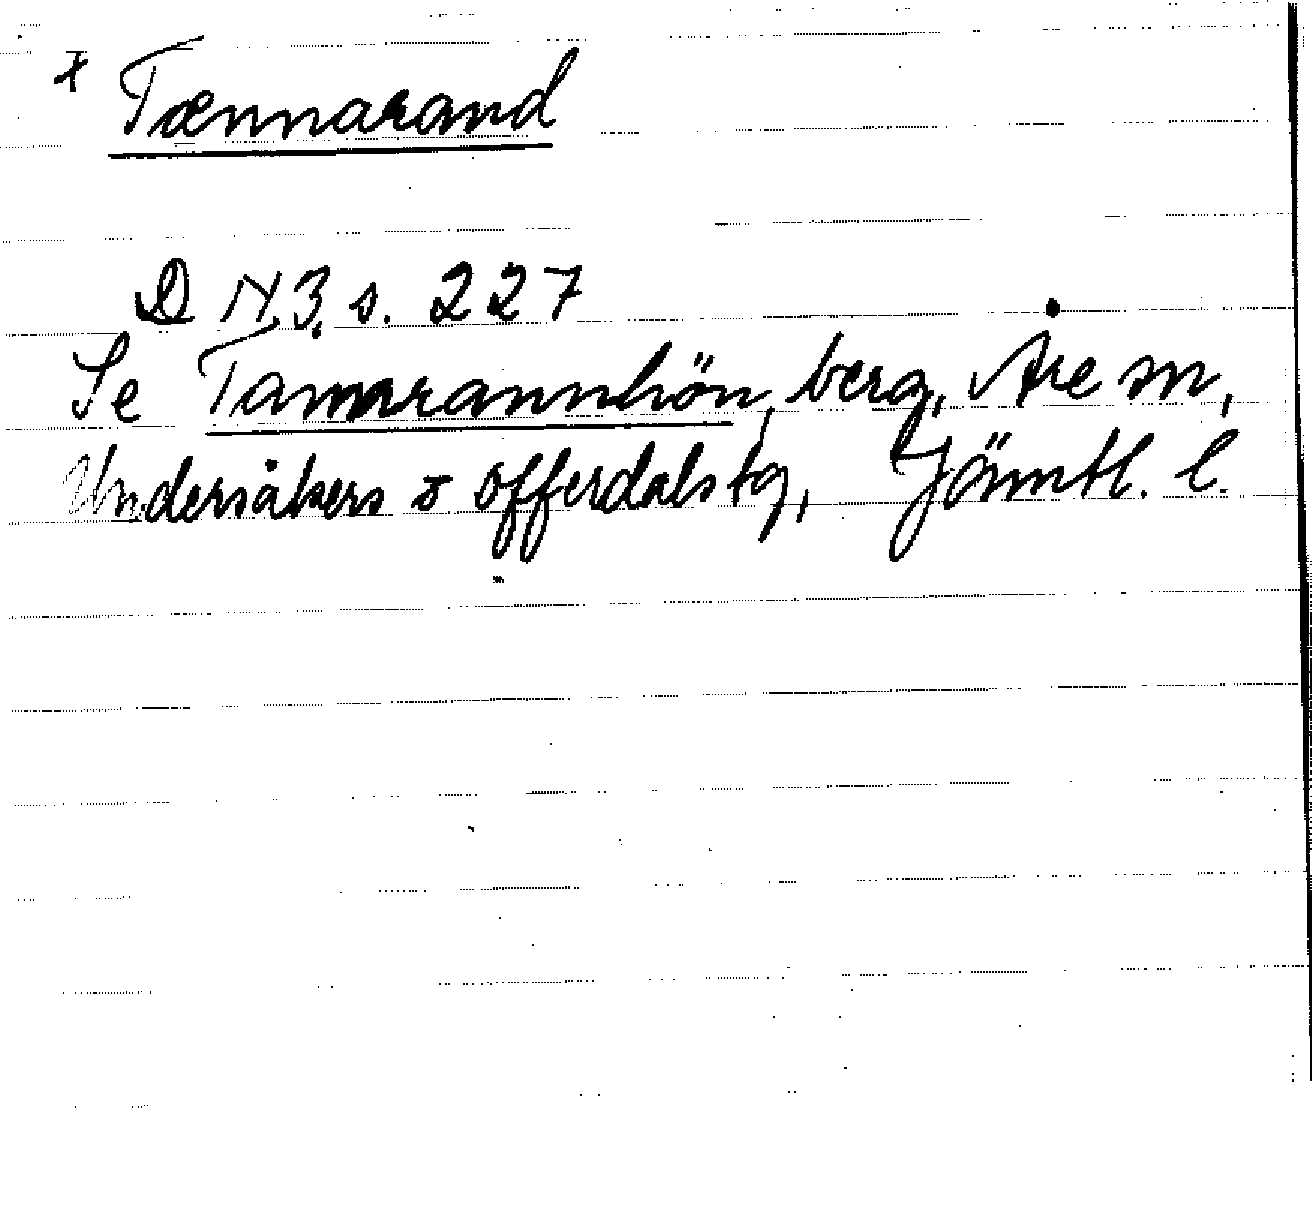 x Tænnarand
D N.3, s. 227
Se Tamarannhön, berg, Åre sn,
Undersåkers o Offerdals tg, Jämtl. l.